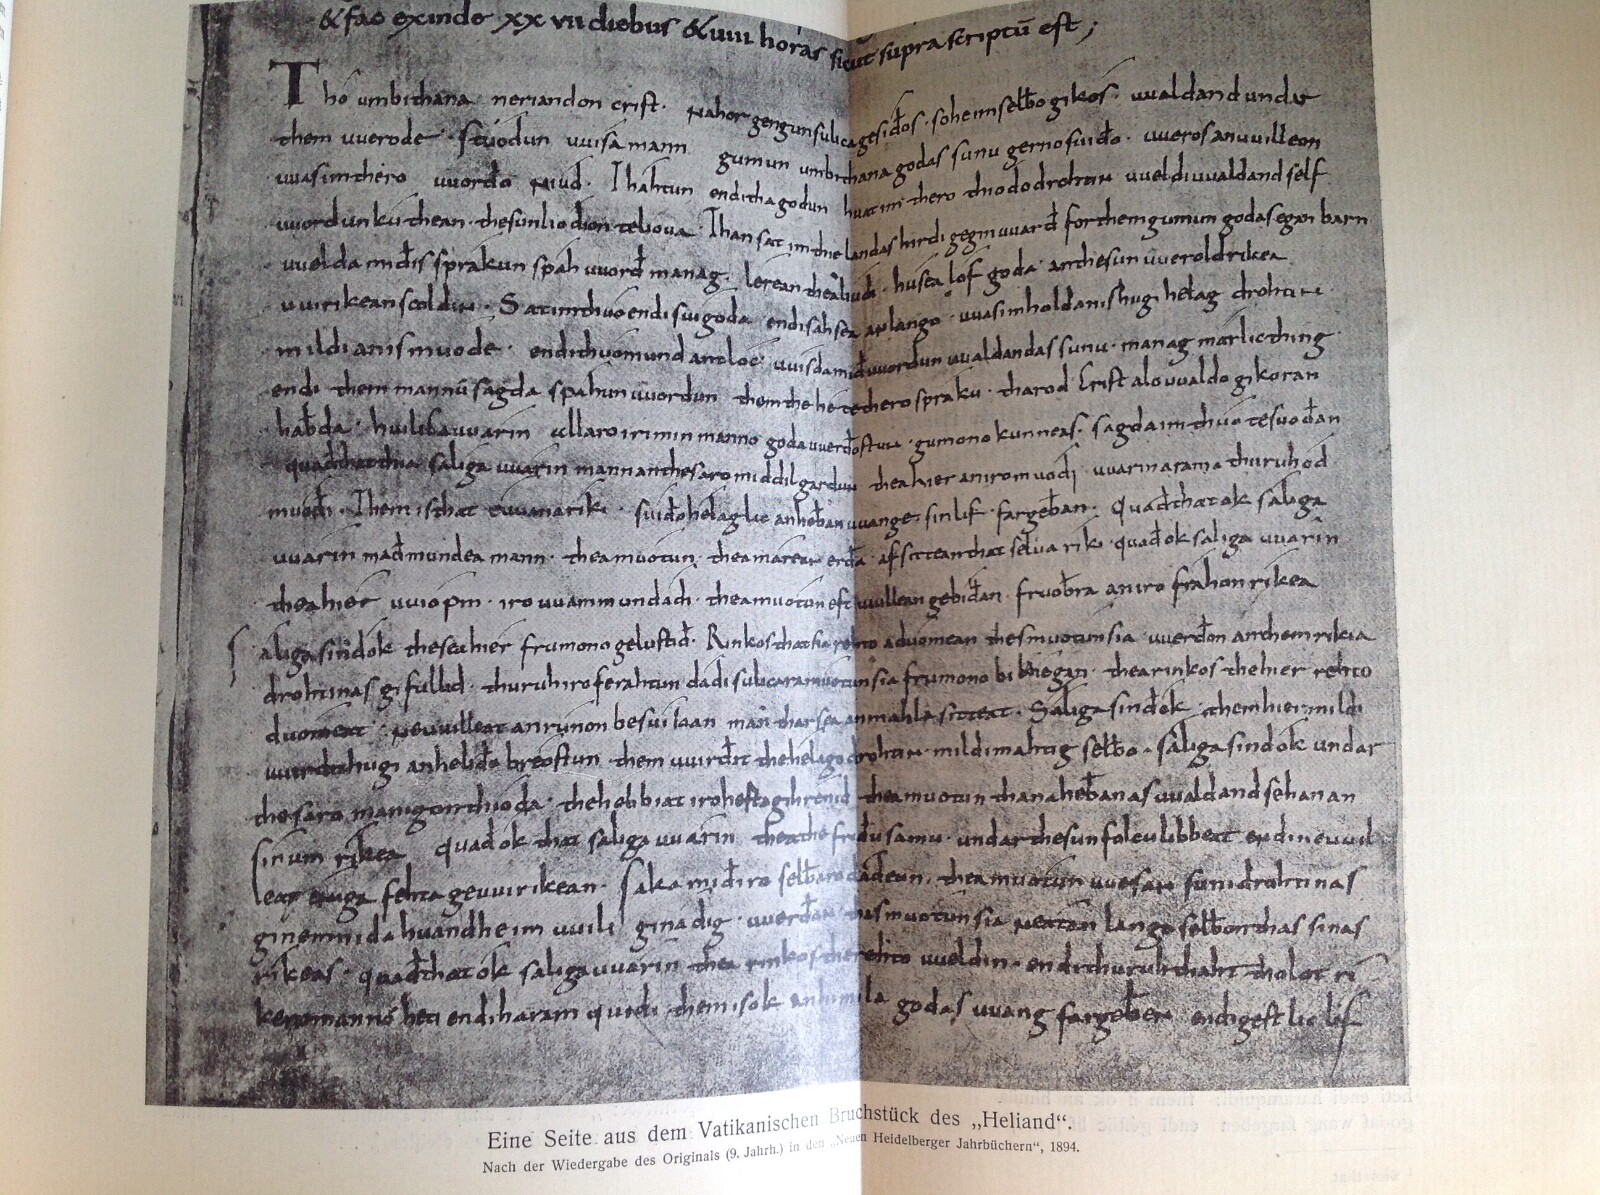 & fac exinde xx vii diebus & uiiii horas sicut supra scriptū est;
Tho umbithana neriandon crist. nahor gengun sulica gesiđos. sohe im selƀo gikos. uualdand undar
them uuerode. stuodun uuisa mann gumun umbi thana godas sunu gerno suuiđo. uueros an uuilleon
uuas im thero uuordo niud. Thahtun endi thagodun huat im thero thiodo drohtin uueldi uualdand self
uuordun kuthean. thesun liodion te lioƀa. Than sat im the landas hirdi geginuuard for them gumun godas egan barn
uuelda mid is sprakun spah uuord manag. lerean thea liudi. hu sea lof goda an thesun uueroldrikea
uuirikean scoldin. Sat im thuo endi suigoda endi sah sea an lango. uuas im hold an is hugi helag drohtin.
mildi an is muode. endi thuo mund antloc. uuisda mid uuordun uualdandas sunu. manag marlic thing
endi them mannū sagda spahun uuordun them the he te thero spraku. tharod Crist alouualdo gikoran
haƀda. huilika uuarin allaro irimin manno goda uuerđostun. gumono kunneas. sagda im thuo te suođan
quađ that thia saliga uuarin mann an thesaro middilgardun thea hier an iro muodi uuarin arama thuru hođ
muodi. Them is that euuana riki. suiđo helaglic an heƀanuuange. sin lif fargeƀan. Quađ that ok saliga
uuarin mađmundea mann. thea muotun. thea marean erđa. afsittean that selƀa riki. quađ ok saliga uuarin
thea hier uuiopin. iro uuammun dadi. thea muotun eft uuillean gebidan. fruoƀra an iro frahon rikea
Saliga sind ok the sea hier frumono gelustid. Rinkos that sia rehto aduomean thes muotun sia uuerđon an them rikia
drohtinas gifullid. thuru hiro ferahtun dadi sulicara muotun sia frumono bi knegan. thea rinkos the hier rehto
duomeat. ne uuilleat an runon besuikan man thar sea an mahle sitteat. Saliga sind ok them hier mildi
uuirđit hugi an heliđo breostun. them uuirđit the helago drohtin. mildi mahtig selƀo. Saliga sind ok undar
thesaro manigon thioda. the hebbiat iro herta gihrenid thea muotun thana heƀanas uualdand sehan an
sinum rikea quađ ok that saliga uuarin thea the friđusamu. undar thesun folcu libbeat endi ne uuil
leat eniga fehta geuuirikean. saka mid iro selƀaro dadeun. thea muotun uuesan suni drohtinas
ginemnida huand he im uuili ginadig uuerđan. thas muotun sia nietan lango selƀon thas sinas
rikeas. quađ that ok saliga uuarin thea rinkos the rehto uueldin. endi thuru that tholot ri
keromanno heti endi haramquidi. them is ok an himila godas uuang fargeƀen endi gestlic lif
Eine Seite aus dem Vatikanischen Bruchstück des „Heliand“.
Nach der Wiedergabe des Originals (9. Jahrh.) in den „Neuen Heidelberger Jahrbüchern“, 1894.